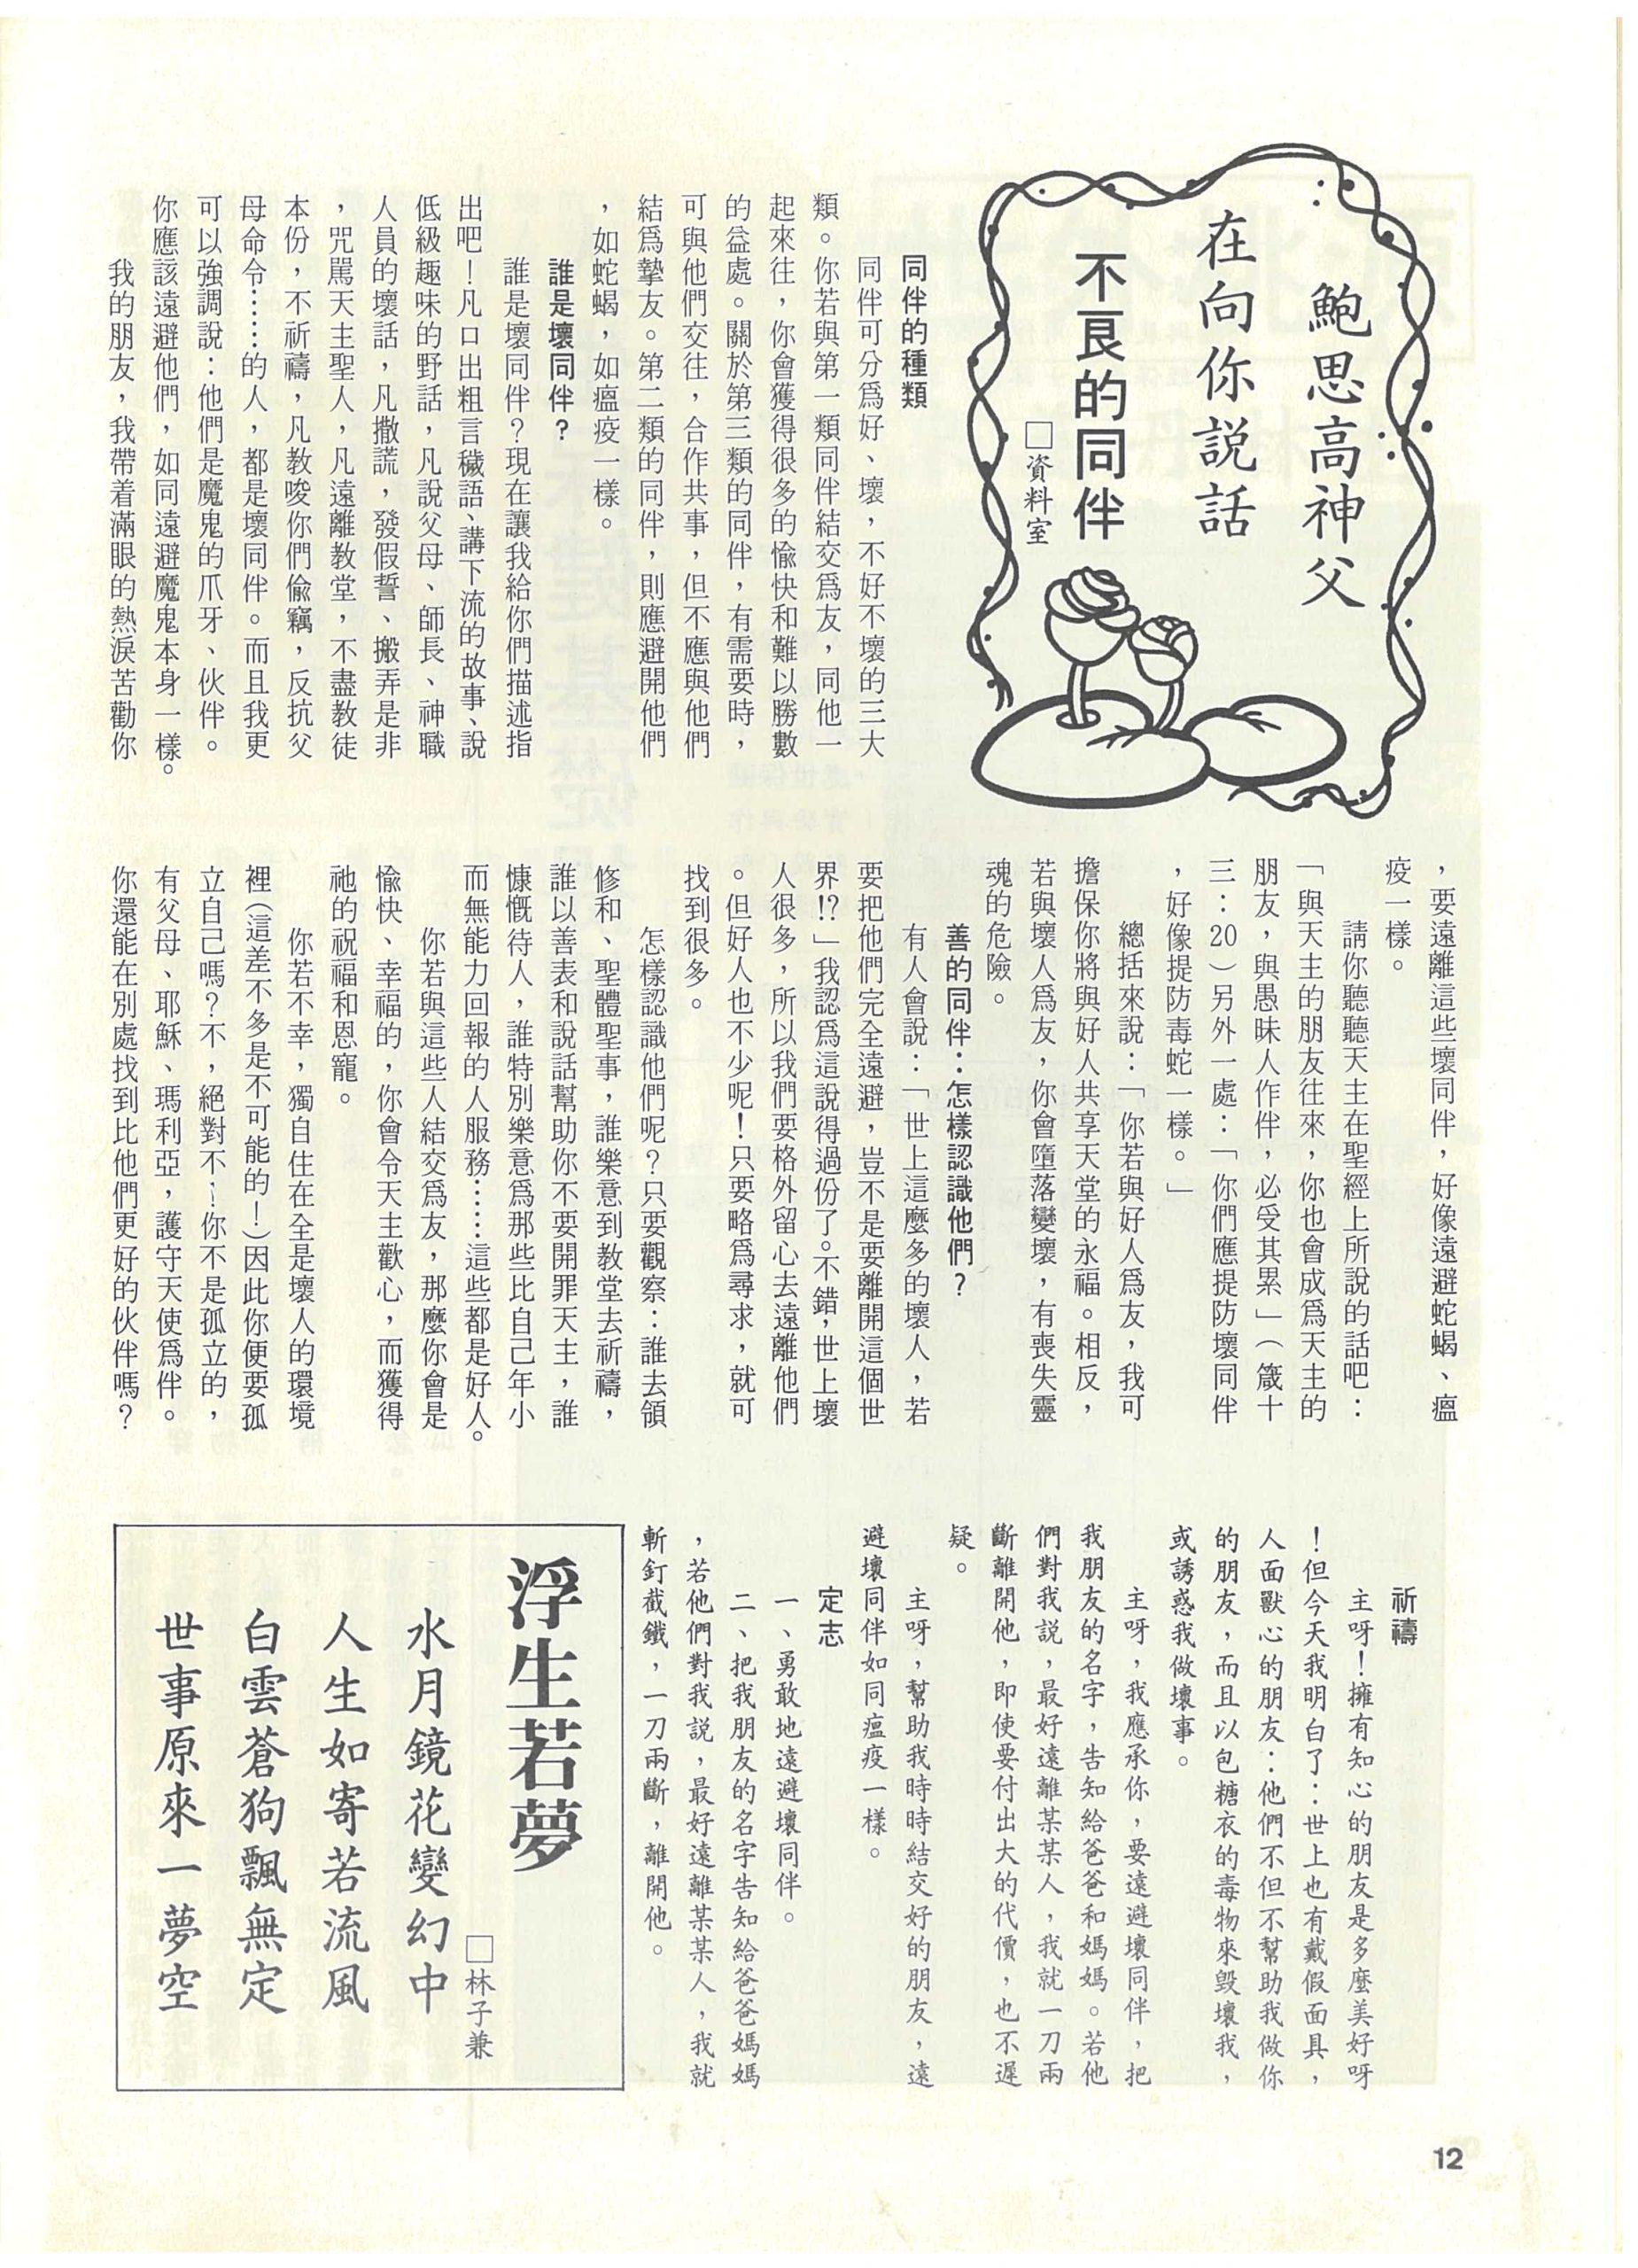 鮑思高神父
在向你説話
不良的同伴
□資料室
同伴的種類
同伴可分爲好、壞，不好不壞的三大
類。你若與第一類同伴結交爲友，同他一
起來往，你會獲得很多的愉快和難以勝數
的益處。關於第三類的同伴，有需要時，
可與他們交往，合作共事，但不應與他們
結爲摯友。第二類的同伴，則應避開他們
，如蛇蝎，如瘟疫一樣。
誰是壞同伴？
誰是壞同伴？現在讓我給你們描述指
出吧！凡口出粗言穢語、講下流的故事、說
低級趣味的野話，凡說父母、師長、神職
人員的壞話，凡撒謊，發假誓、搬弄是非
，咒駡天主聖人，凡遠離教堂，不盡教徒
本份，不祈禱，凡教唆你們偷竊，反抗父
母命令……的人，都是壞同伴。而且我更
可以強調說：他們是魔鬼的爪牙、伙伴。
你應該遠避他們，如同遠避魔鬼本身一樣。
我的朋友，我帶着滿眼的熱淚苦勸你
，要遠離這些壞同伴，好像遠避蛇蝎、瘟
疫一樣。
請你聽聽天主在聖經上所說的話吧：
「與天主的朋友往來，你也會成爲天主的
朋友，與愚昧人作伴，必受其累」（箴十
三：20）另外一處：「你們應提防壞同伴
，好像提防毒蛇一樣。」
總括來說：「你若與好人爲友，我可
擔保你將與好人共享天堂的永福。相反，
若與壞人爲友，你會墮落變壞，有喪失靈
魂的危險。
善的同伴：怎樣認識他們？
有人會說：「世上這麼多的壞人，若
要把他們完全遠避，豈不是要離開這個世
界!?」我認爲這說得過份了。不錯，世上壞
人很多，所以我們要格外留心去遠離他們
。但好人也不少呢！只要略爲尋求，就可
找到很多。
怎樣認識他們呢？只要觀察：誰去領
修和、聖體聖事，誰樂意到教堂去祈禱，
誰以善表和說話幫助你不要開罪天主，誰
慷慨待人，誰特別樂意爲那些比自己年小
而無能力回報的人服務……這些都是好人。
你若與這些人結交爲友，那麼你會是
愉快、幸福的，你會令天主歡心，而獲得
祂的祝福和恩寵。
你若不幸，獨自住在全是壞人的環境
裡（這差不多是不可能的！）因此你便要孤
立自己嗎？不，絕對不！你不是孤立的，
有父母、耶穌、瑪利亞，護守天使爲伴。
你還能在別處找到比他們更好的伙伴嗎？
祈禱
主呀！擁有知心的朋友是多麼美好呀
！但今天我明白了：世上也有戴假面具，
人面獸心的朋友：他們不但不幫助我做你
的朋友，而且以包糖衣的毒物來毀壞我，
或誘惑我做壞事。
主呀，我應承你，要遠避壞同伴，把
我朋友的名字，告知給爸爸和媽媽。若他
們對我説，最好遠離某某人，我就一刀兩
斷離開他，即使要付出大的代價，也不遲
疑。
主呀，幫助我時時結交好的朋友，遠
避壞同伴如同瘟疫一樣。
定志
一、勇敢地遠避壞同伴。
二、把我朋友的名字告知給爸爸媽媽
，若他們對我説，最好遠離某某人，我就
斬釘截鐵，一刀兩斷，離開他。
浮生若夢
□林子兼
水月鏡花變幻中
人生如寄若流風
白雲蒼狗飄無定
世事原來一夢空
12